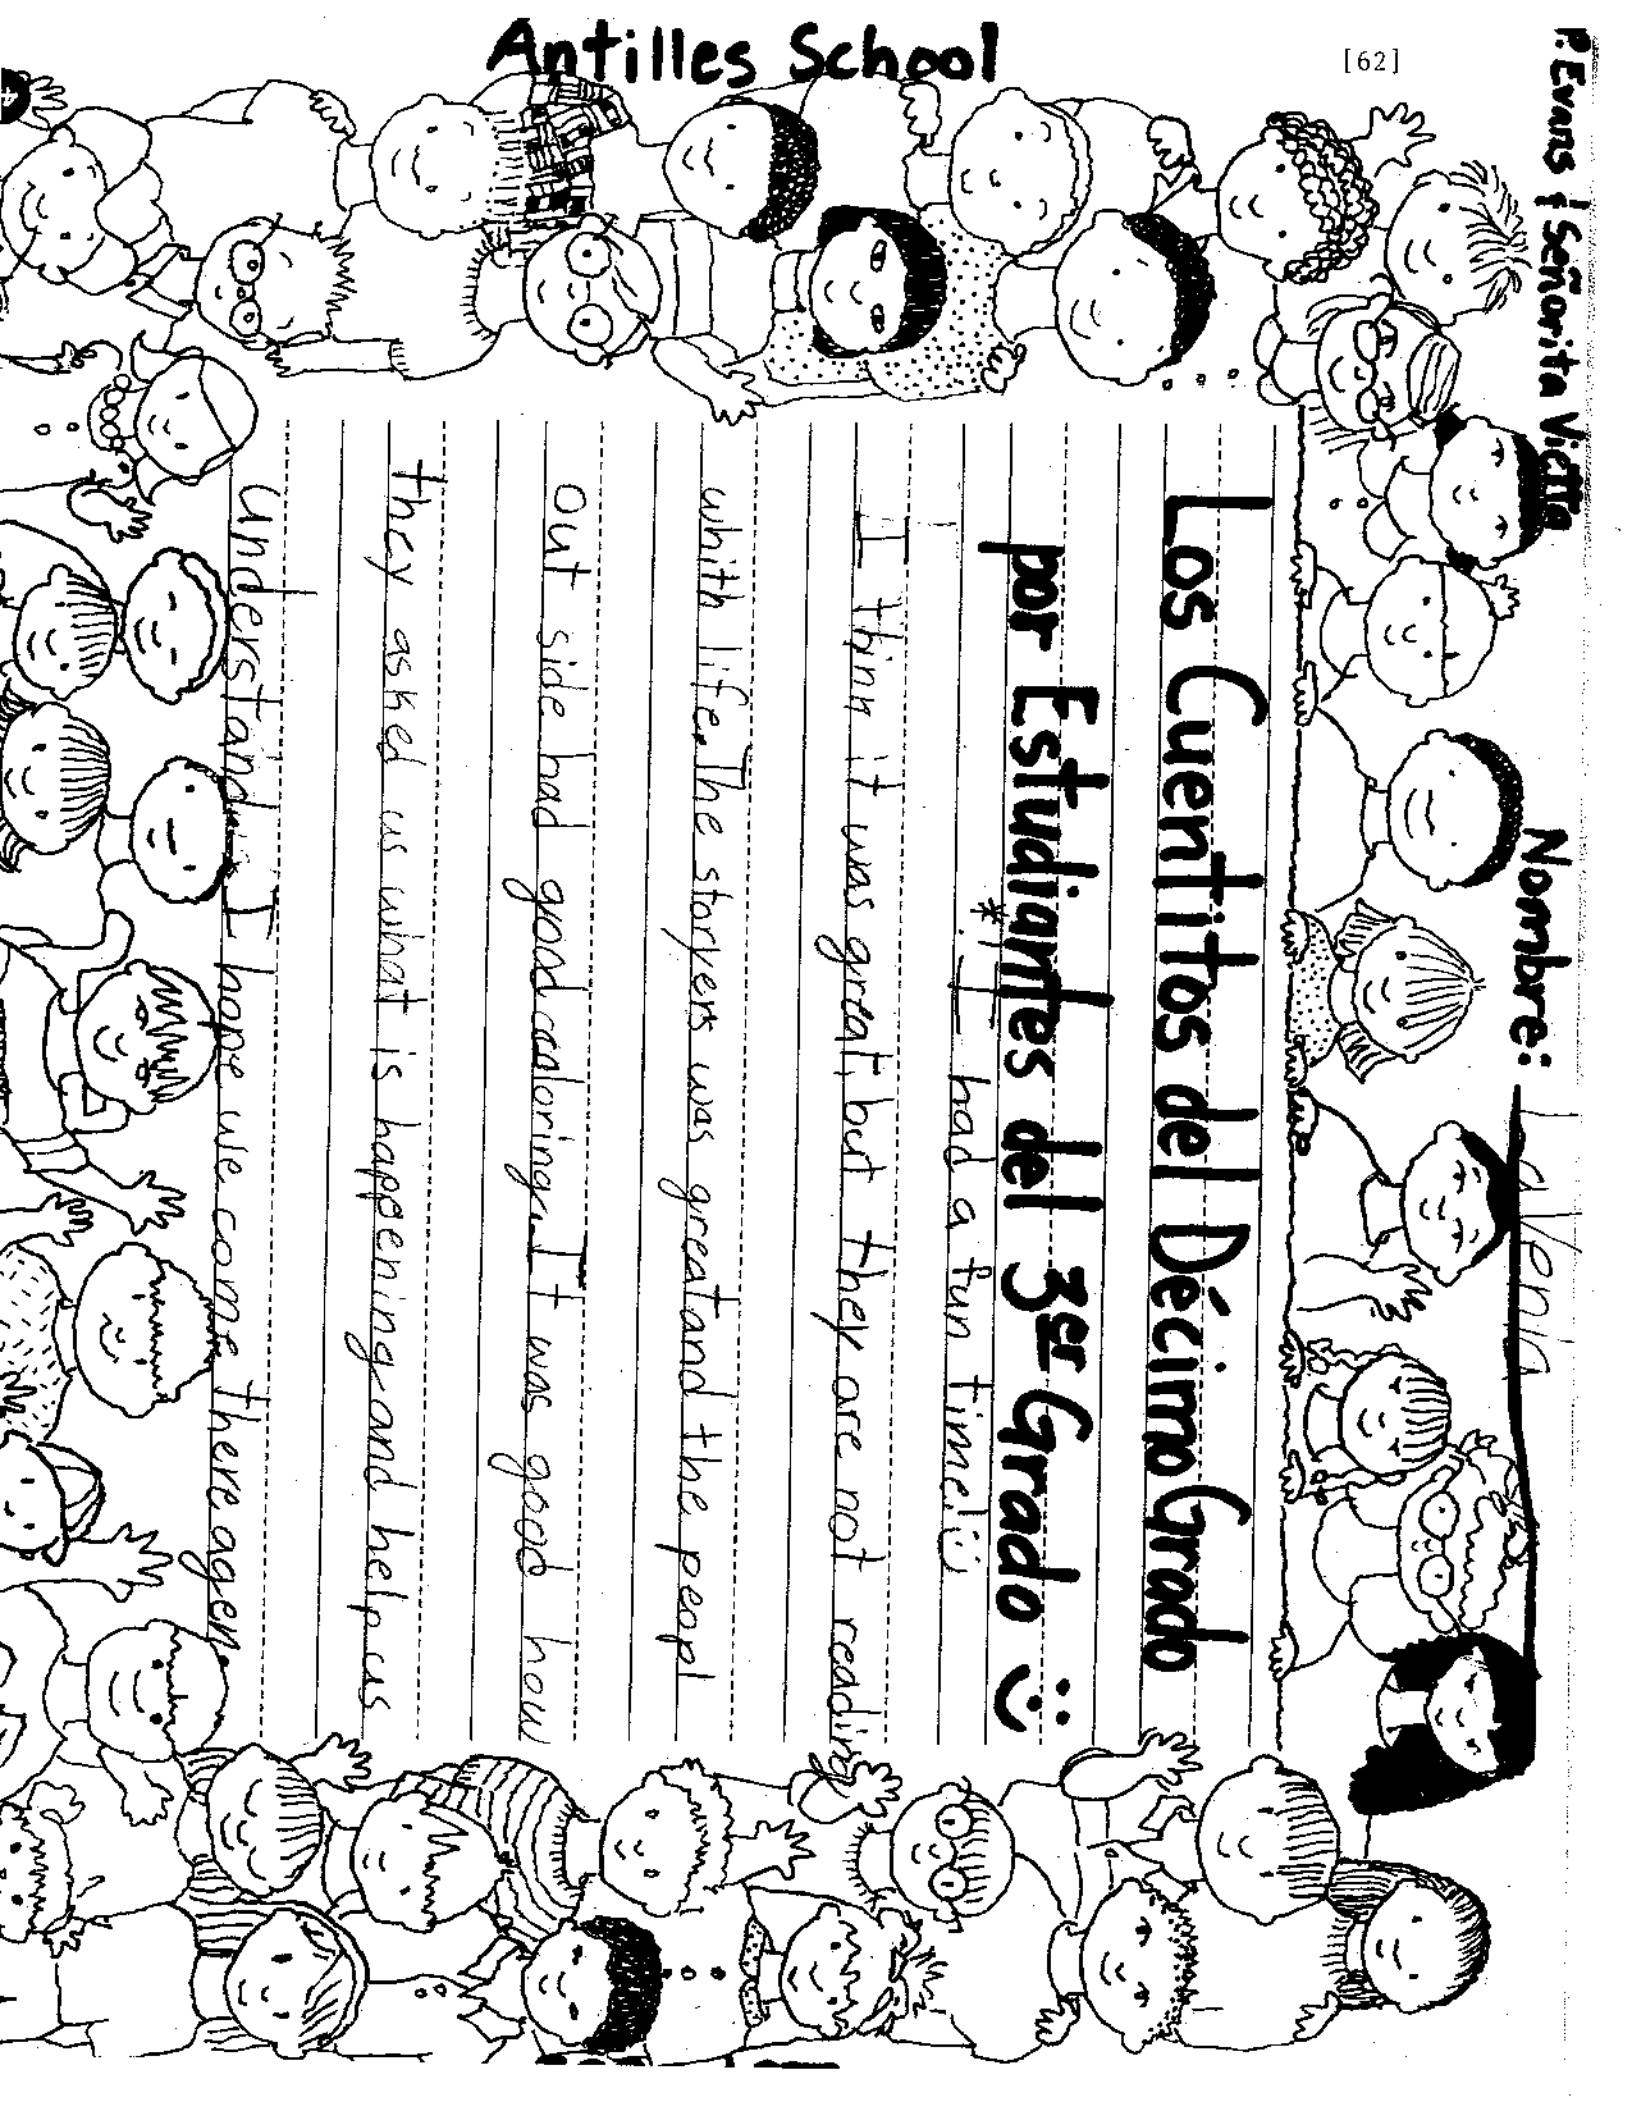 Antilles School
[62]
P. Evans ¡ Señorita Vietta
Nombre:
Los Cuentitos del Décimo Grado
por Estudiantes del 3er Grado :)
* I had a fun time! :)
I think it was great, but they are not reading
whith life. The storyers was great and the peopl
out side had good cooloring. It was good how
they asked us what is happening and help us
understand. I hope we come there agen.